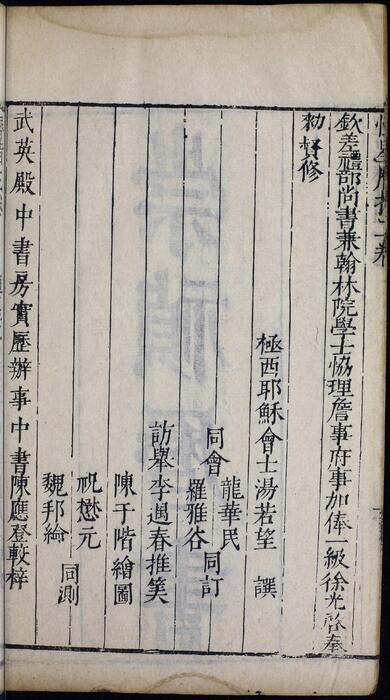 恆星曆指一卷
欽差禮部尚書兼翰林院學士協理詹事府事加俸一級徐光啓奉
勑督修
極西耶穌會士湯若望 撰
同會
龍華民
羅雅谷
同訂
訪舉李遇春推筭
陳于階繪圖
祝懋元
魏邦綸
同測
武英殿中書房實歷辦事中書陳應登較梓